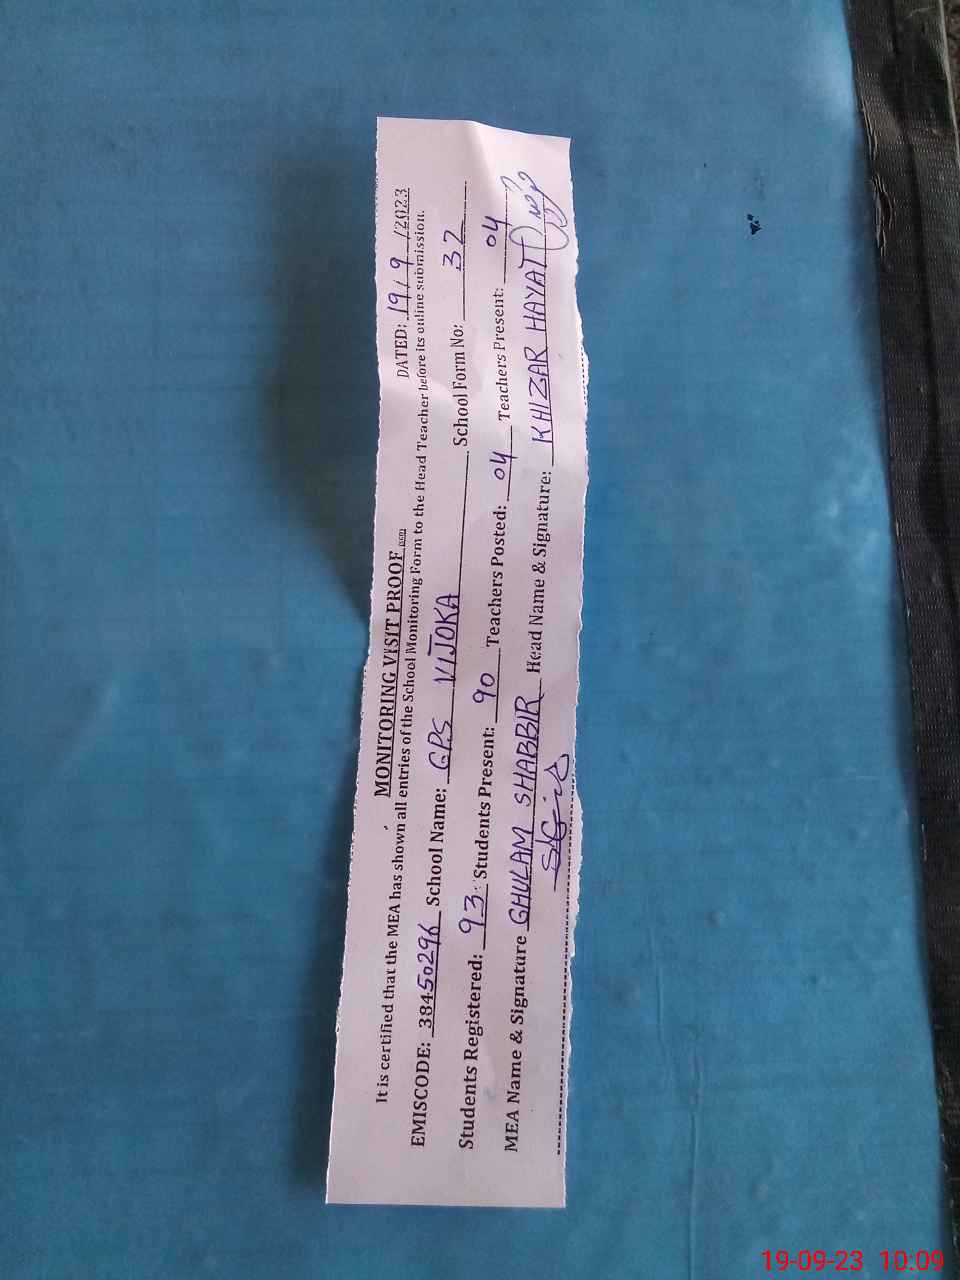 MONITORING VISIT PROOF DATED: 19/9/2023
It is certified that the MEA has shown all entries of the School Monitoring Form to the Head Teacher before its online submission.
EMISCODE: 38450296 School Name: GPS VIJOKA School Form No: 32
Students Registered: 93 Students Present: 90 Teachers Posted: 04 Teachers Present: 04
MEA Name & Signature GHULAM SHABBIR Head Name & Signature: KHIZAR HAYAT
19-09-23 10:09